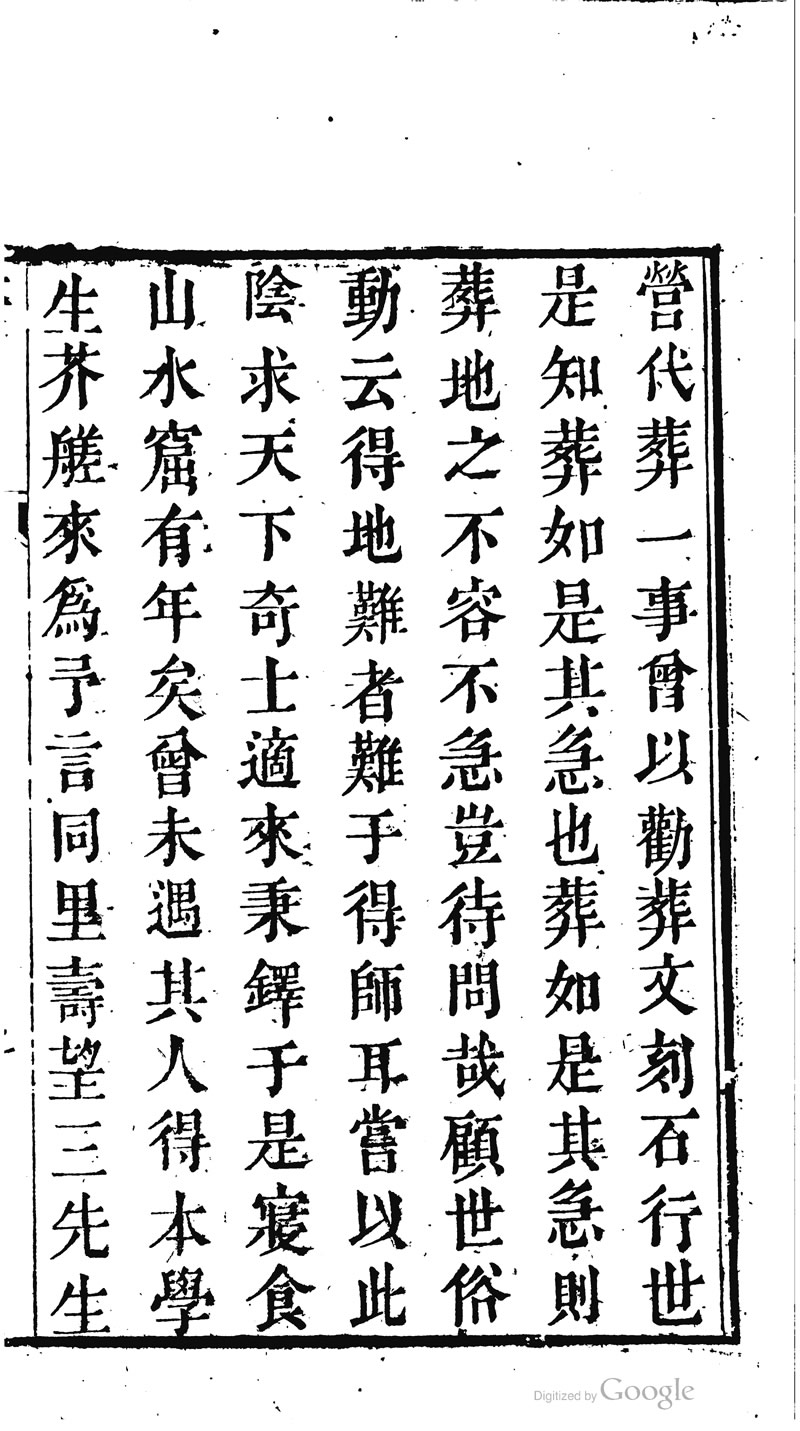 營代葬一事曾以勸葬文刻石行世
是知葬如是其急也葬如是其急則
葬地之不容不急豈待問哉顧世俗
動云得地難者難于得師耳嘗以此
陰求天下奇士適來秉鐸于是寢食
山水窟有年矣曾未遇其人得本學
生芥艖來爲予言同里壽望三先生
Digitized by Google